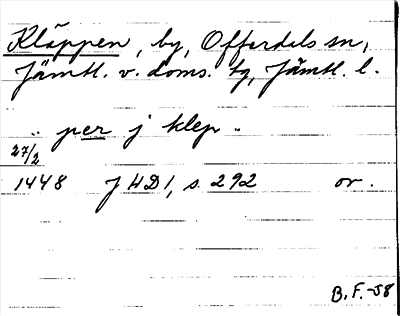 Kläppen, by, Offerdals sn,
Jämtl. v. doms. tg, Jämtl. l.
.. per j klep ..
27/2
1448 JHD1, s. 292 or.
B.F.-58